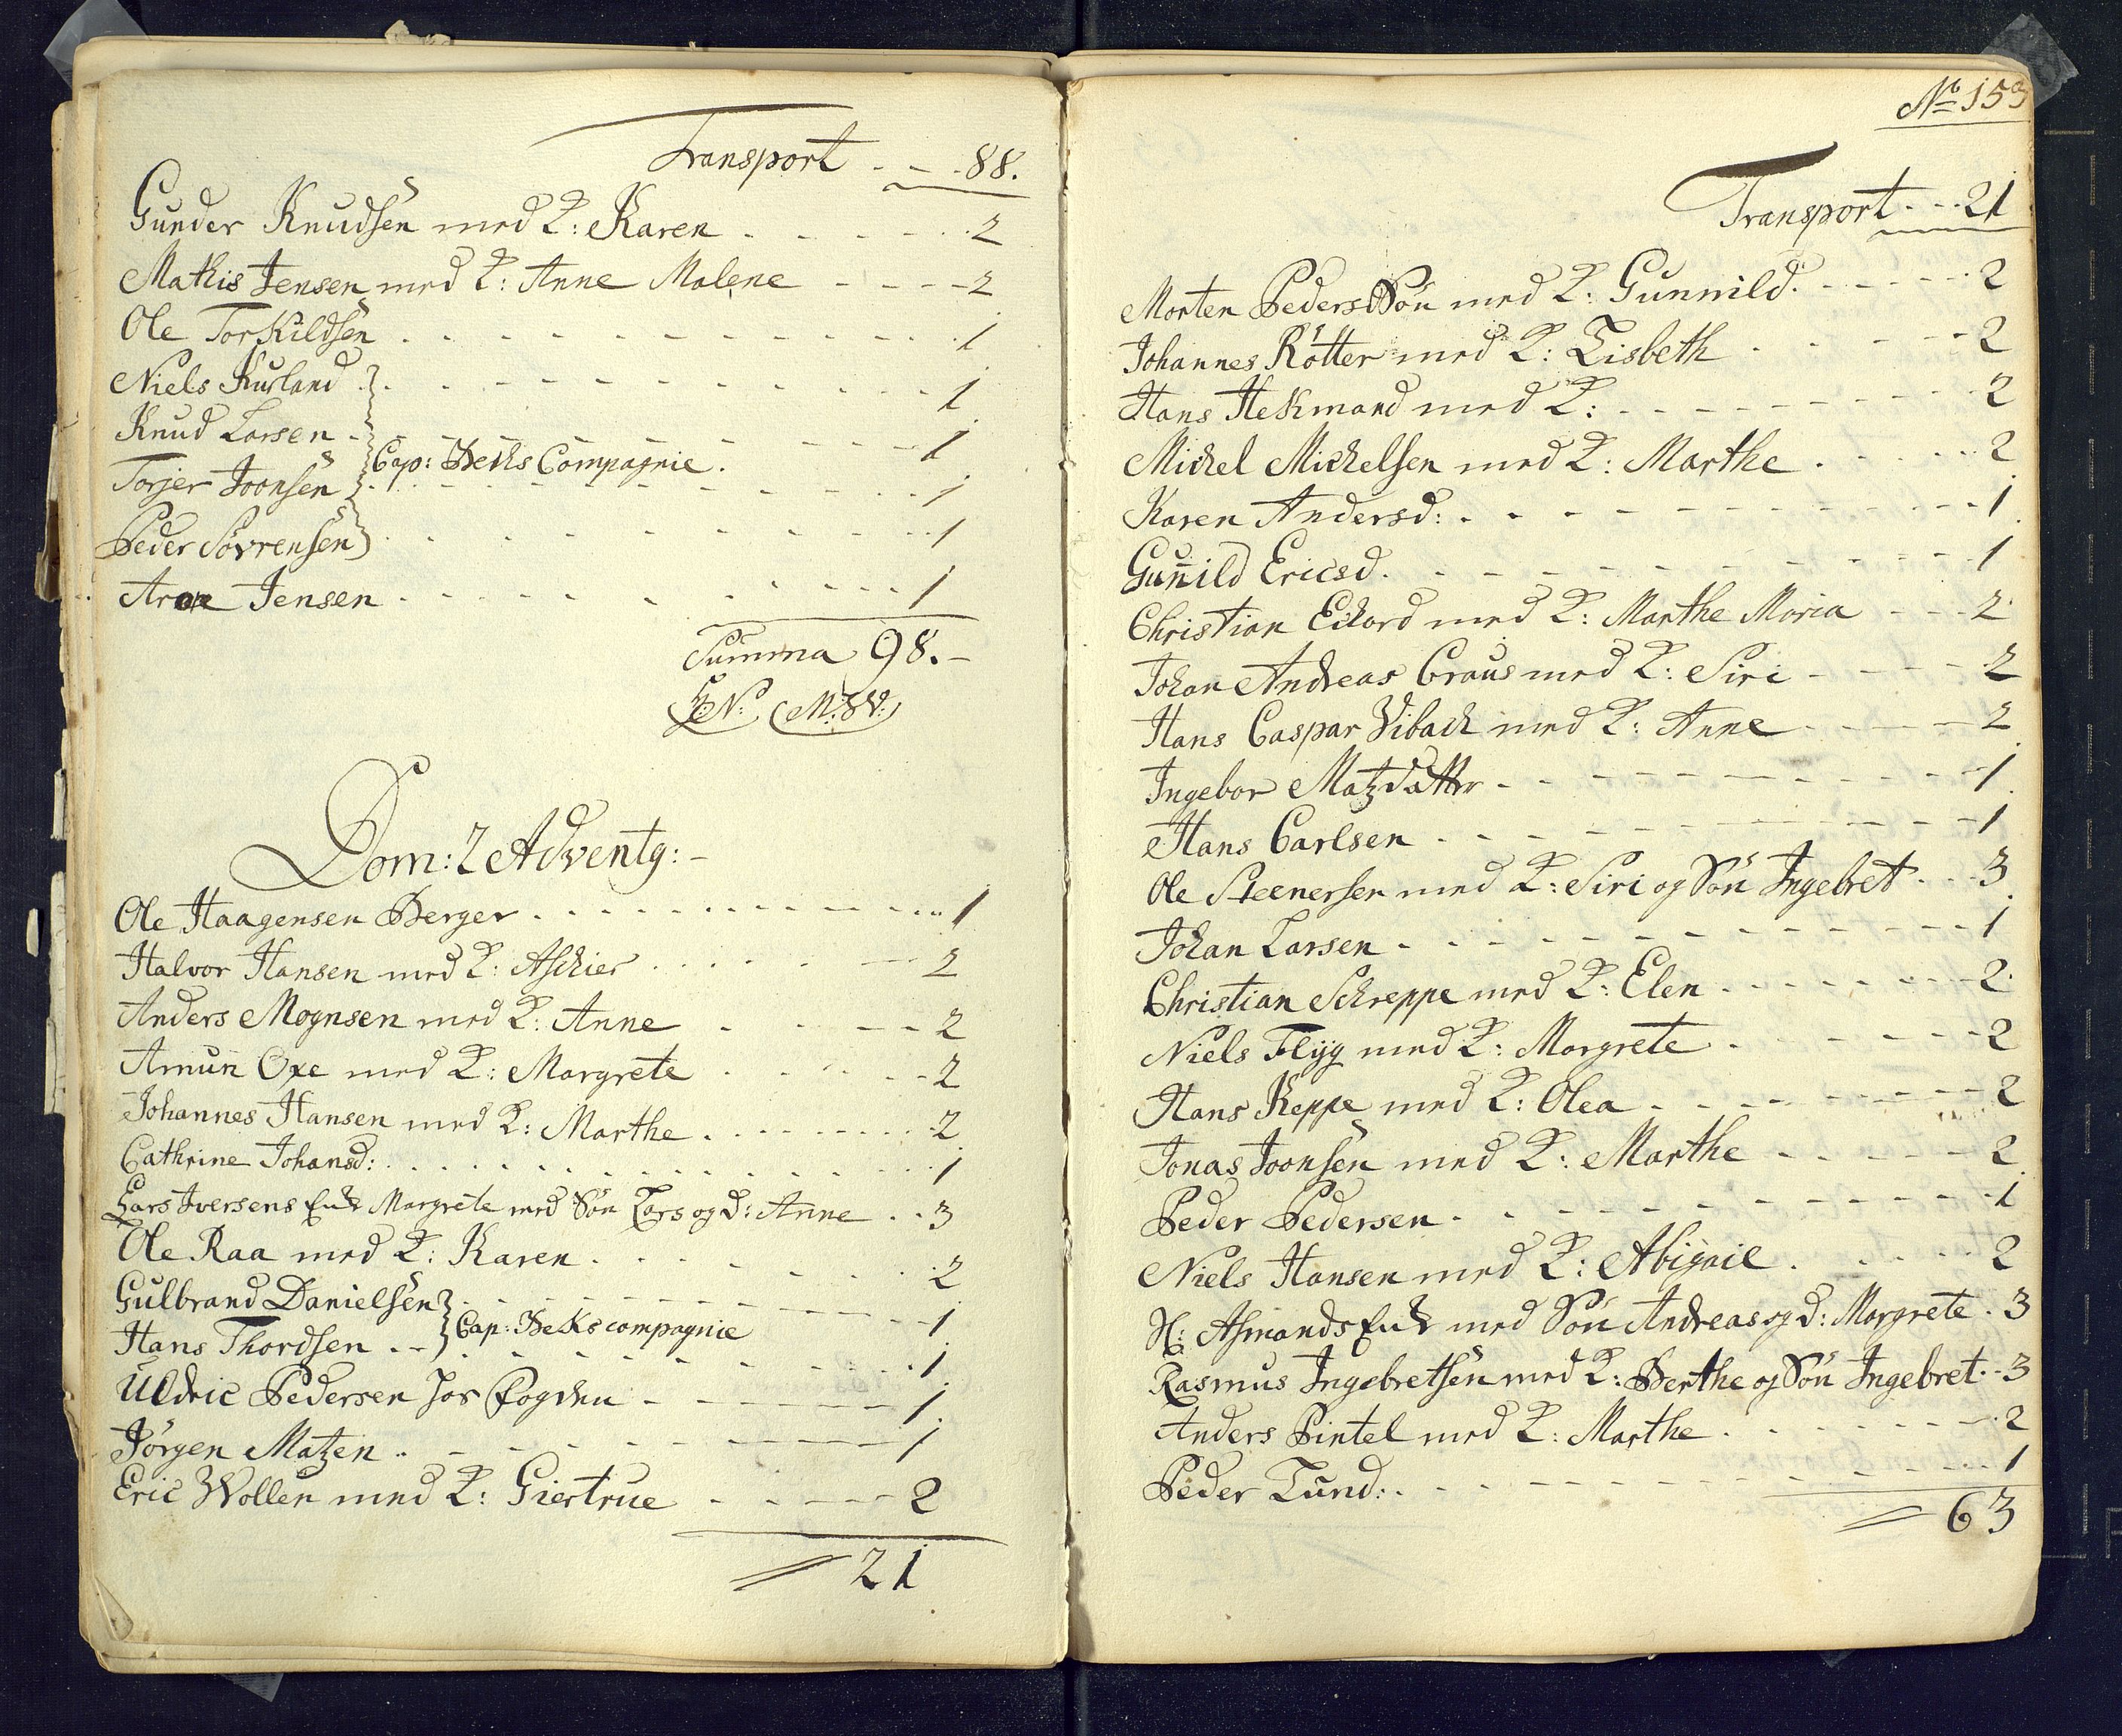 Transport - - - 88.
Gunder Knudsen med K: Karen - - - - - 2
Mathis Jensen med K: Anne Malene - - - - 2
Ole Torkildsen - - - - - 1
Niels Kurland - - - - - 1
Knud Larsen - - - - - 1
Cap: Beks Compagnie.
Torjer Joonsen - - - - - 1
Peder Sövrensen - - - - - 1
Jensen - - - - - 1
Summa 98.-
Dom: 2 Adventg: -
Ole Haagensen Berger - - - - - 1
Halvor Hansen med K: Aschier - - - - - 2
Anders Mognsen med K: Anne - - - - 2
Amun Oxe med K: Margrete - - - - 2
Johannes Hansen med K: Marthe - - - - - 2
Cathrine Johansd: - - - - - 1
Lars Iversens Enk Margrete med Søn Lars og D: Anne - - 3
Ole Raa med K: Karen - - - - - 2
Gulbrand Danielsen - - - - - 1
Cap: Beks compagnie
Hans Thordsen - - - - - 1
Uldric Pedersen hos Fogden - - - - - 1
Jörgen Matzen - - - - - 1
Eric Wollen med K: Giertrue - - - - - 2
21
No 153
Transport - - - 21
Morten Peders Søn med K: Gunnild - - - - - 2
Johannes Rötter med K: Lisbeth - - - - - 2
Hans Hekmand med K: - - - - - 2
Michel Michelsen med K: Marthe - - - - - 2
Karen Andersd: - - - - - 1
Gun̄ild Ericsd. - - - - - 1
Christian Eckord med K: Marthe Maria - - - 2
Johan Andreas Craus med K: Siri - - - - 2
Hans Caspar Vibach med K: Anne - - - - 2
Ingebor Matzdatter - - - - - 1
Hans Carlsen - - - - - 1
Ole Steenersen med K: Siri og Søn Ingebret - - - 3
Johan Larsen - - - - - 1
Christian Schreppe med K: Elen - - - - - 2
Niels Flÿg med K: Margrete - - - - - 2
Hans Keppe med K: Olea - - - - - 2
Jonas Joonsen med K: Marthe - - - - - 2
Peder Pedersen - - - - - 1
Niels Hansen med K: Abigail - - - - - 2
H: Asmands Enk med Søn Andreas og D: Margrete - 3
Rasmus Ingebretsen med K: Berthe og Søn Ingebret - - 3
Anders Pintel med K: Marthe - - - - - 2
Peder Lund: - - - - - 1
63